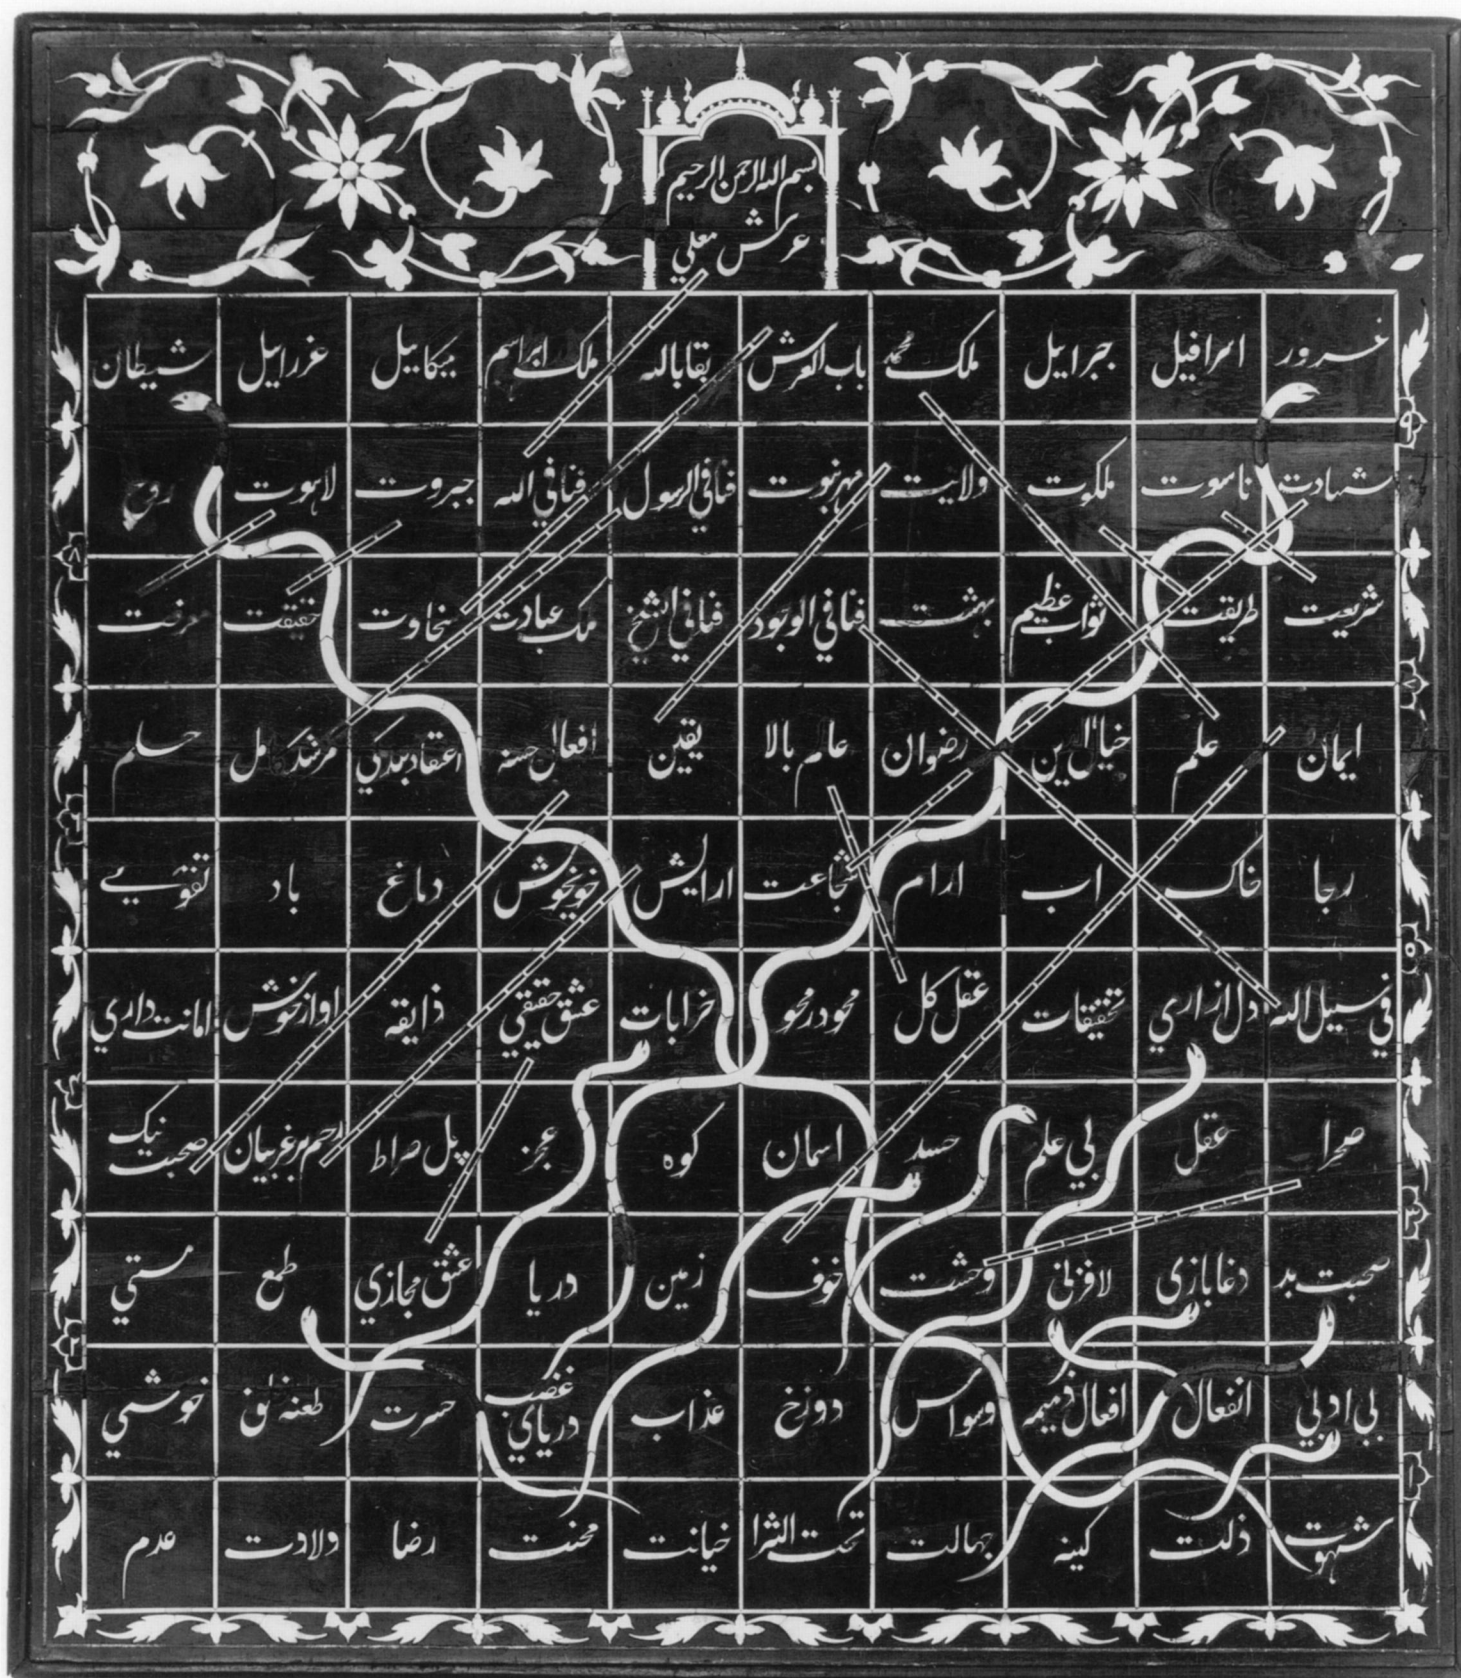 بسم الله الرحمن الرحيم
عرش معلي
غرور اسرافيل جبراييل ملك محمد باب العرش بقابالله ملك ابراسم ميكاييل عزراييل شيطان
شهادت ناسوت ملكوت ولايت مهر نبوت فنافي الرسول فنافي الله جبروت لاہوت روح
شريعت طريقت ثواب عظيم بهشت فنافي الوجود فنافي الشيخ ملك عبادت سخاوت حقيقت معرفت
ايمان علم رضوان عالم بالا يقين افعال حسنه اعتقاد بندكي مرشد كامل حلم
رجا خاك اب ارام شجاعت ارايش خويخوش دماغ باد تقويے
في سبيل الله دل ازاري تحقيقات عقل كل محو در محو خرابات عشق حقيقي ذايقه اواز خوش امانت داري
صحرا عقل بي علم حسد اسمان كوه عجز پل صراط رحم بر غريبان صحبت نيك
صحبت بد دغابازي لافزني وحشت خوف زمين دريا عشق مجازي طمع مستي
بي ادبي انفعال افعال ذميمه وسواس دوزخ عذاب درياي غضب حسرت طعنه خلق خوشي
شهوت ذلت كينه جهالت تحت الثرا خيانت محنت رضا ولادت عدم
٩
٨
٧
٥
٣
٢
١